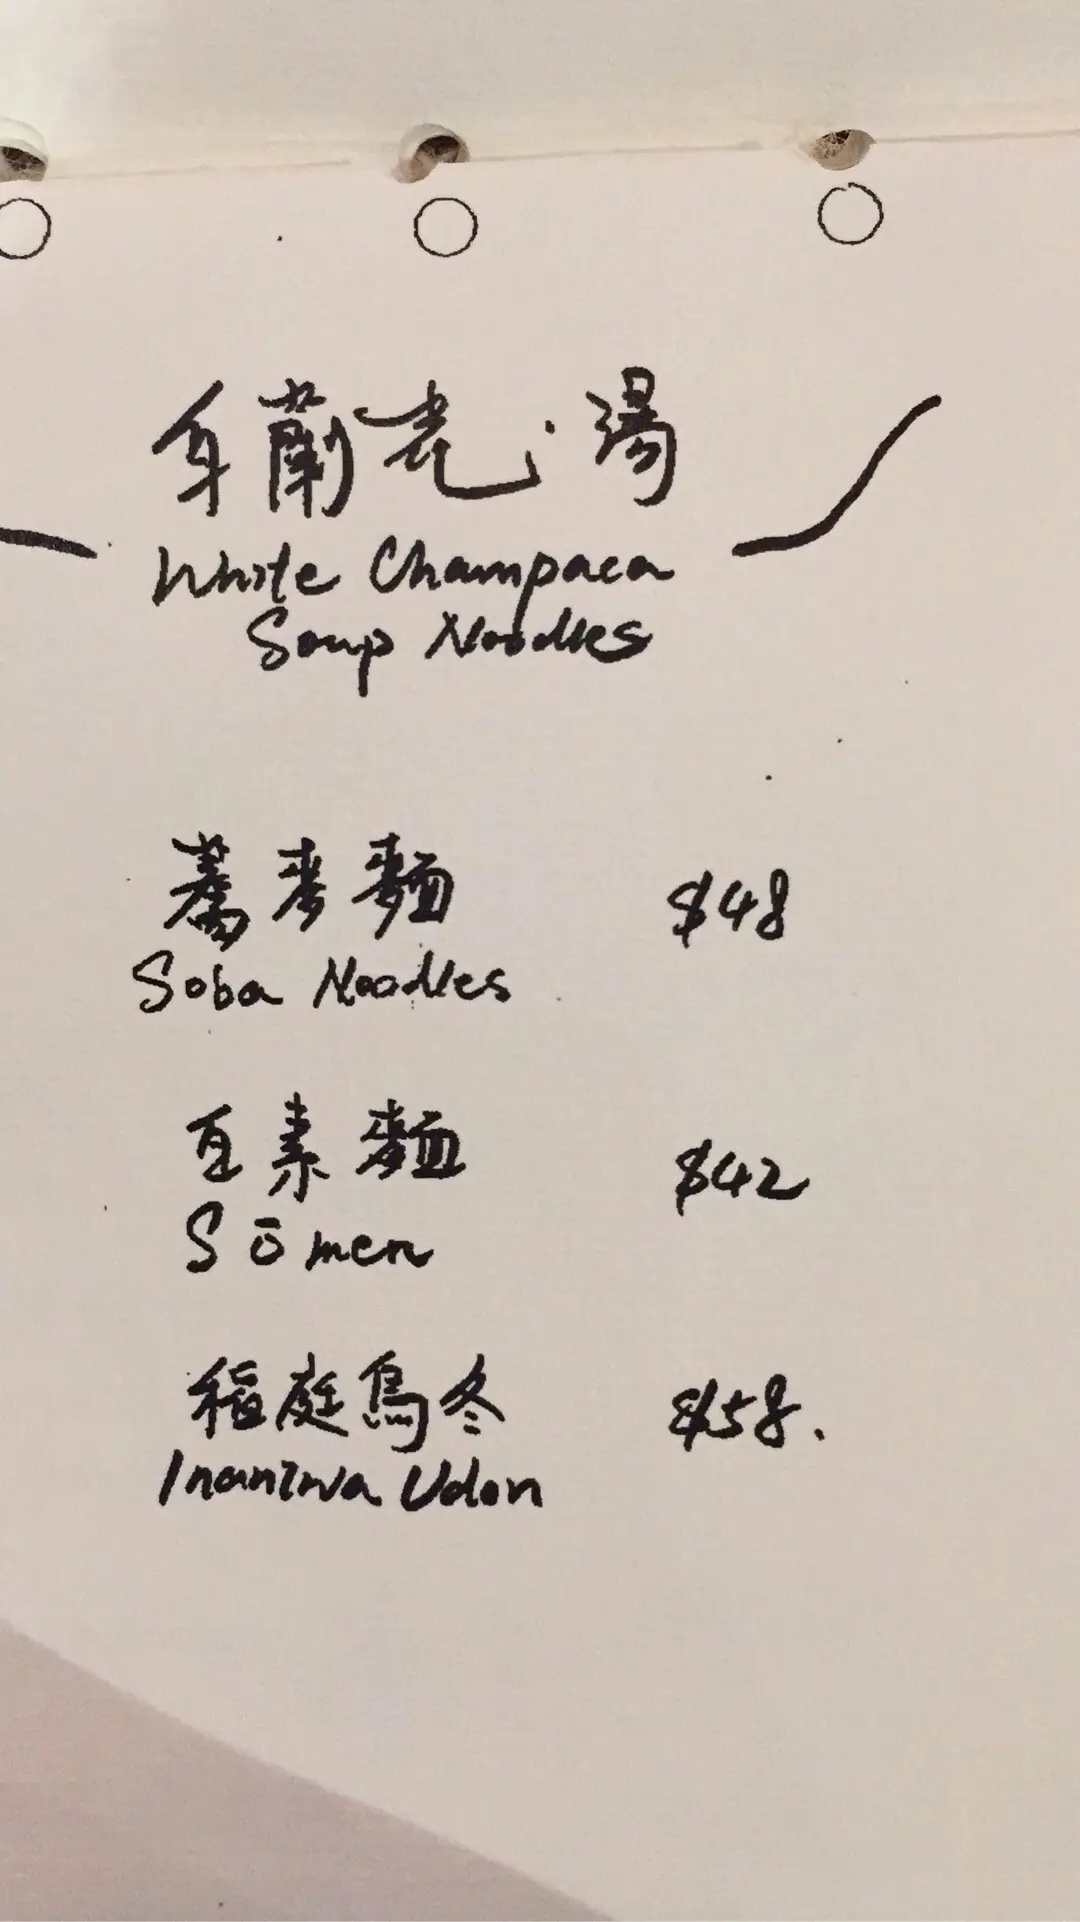 蘭 湯
White Champaca
Soup Noodles
蕎麥麵 $48
Soba Noodles
素麵 $42
Sōmen
稻庭烏冬 $58.
Inaniwa Udon